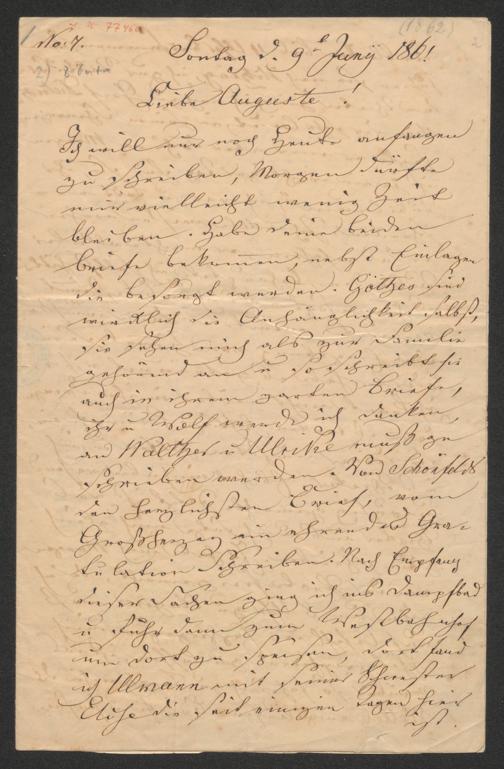 No: 7.
(1862)
2
Sontag d. 9t Juny 1861
Liebe Auguste!
Ich will nur noch Heute anfangen
zu schreiben, Morgen dürfte
mir vielleicht wenig Zeit
bleiben. Habe deine beiden
Briefe bekommen, nebst Einlagen
die besorgt werden. Göthes sind
wirklich die Anhänglichkeit selbst,
sie sehen mich als zur Familie
gehörend an u so schreibt sie
auch in ihrem Briefe,
ihr u Wolf werde ich danken,
an Walther u Ulrike muß ge
schrieben werden. Von Schönfeld
den herzlichsten Brief, vom
Großherzog ein ehrendes Gra-
tulation Schreiben. Nach Empfang
dieser Sachen ging ich ins Dampfbad
u fuhr dann zum Westbahnhof
um dort zu speisen, dort fand
ich Ulmann mit seiner Schwester
die seit einigen Tagen hier
ist.